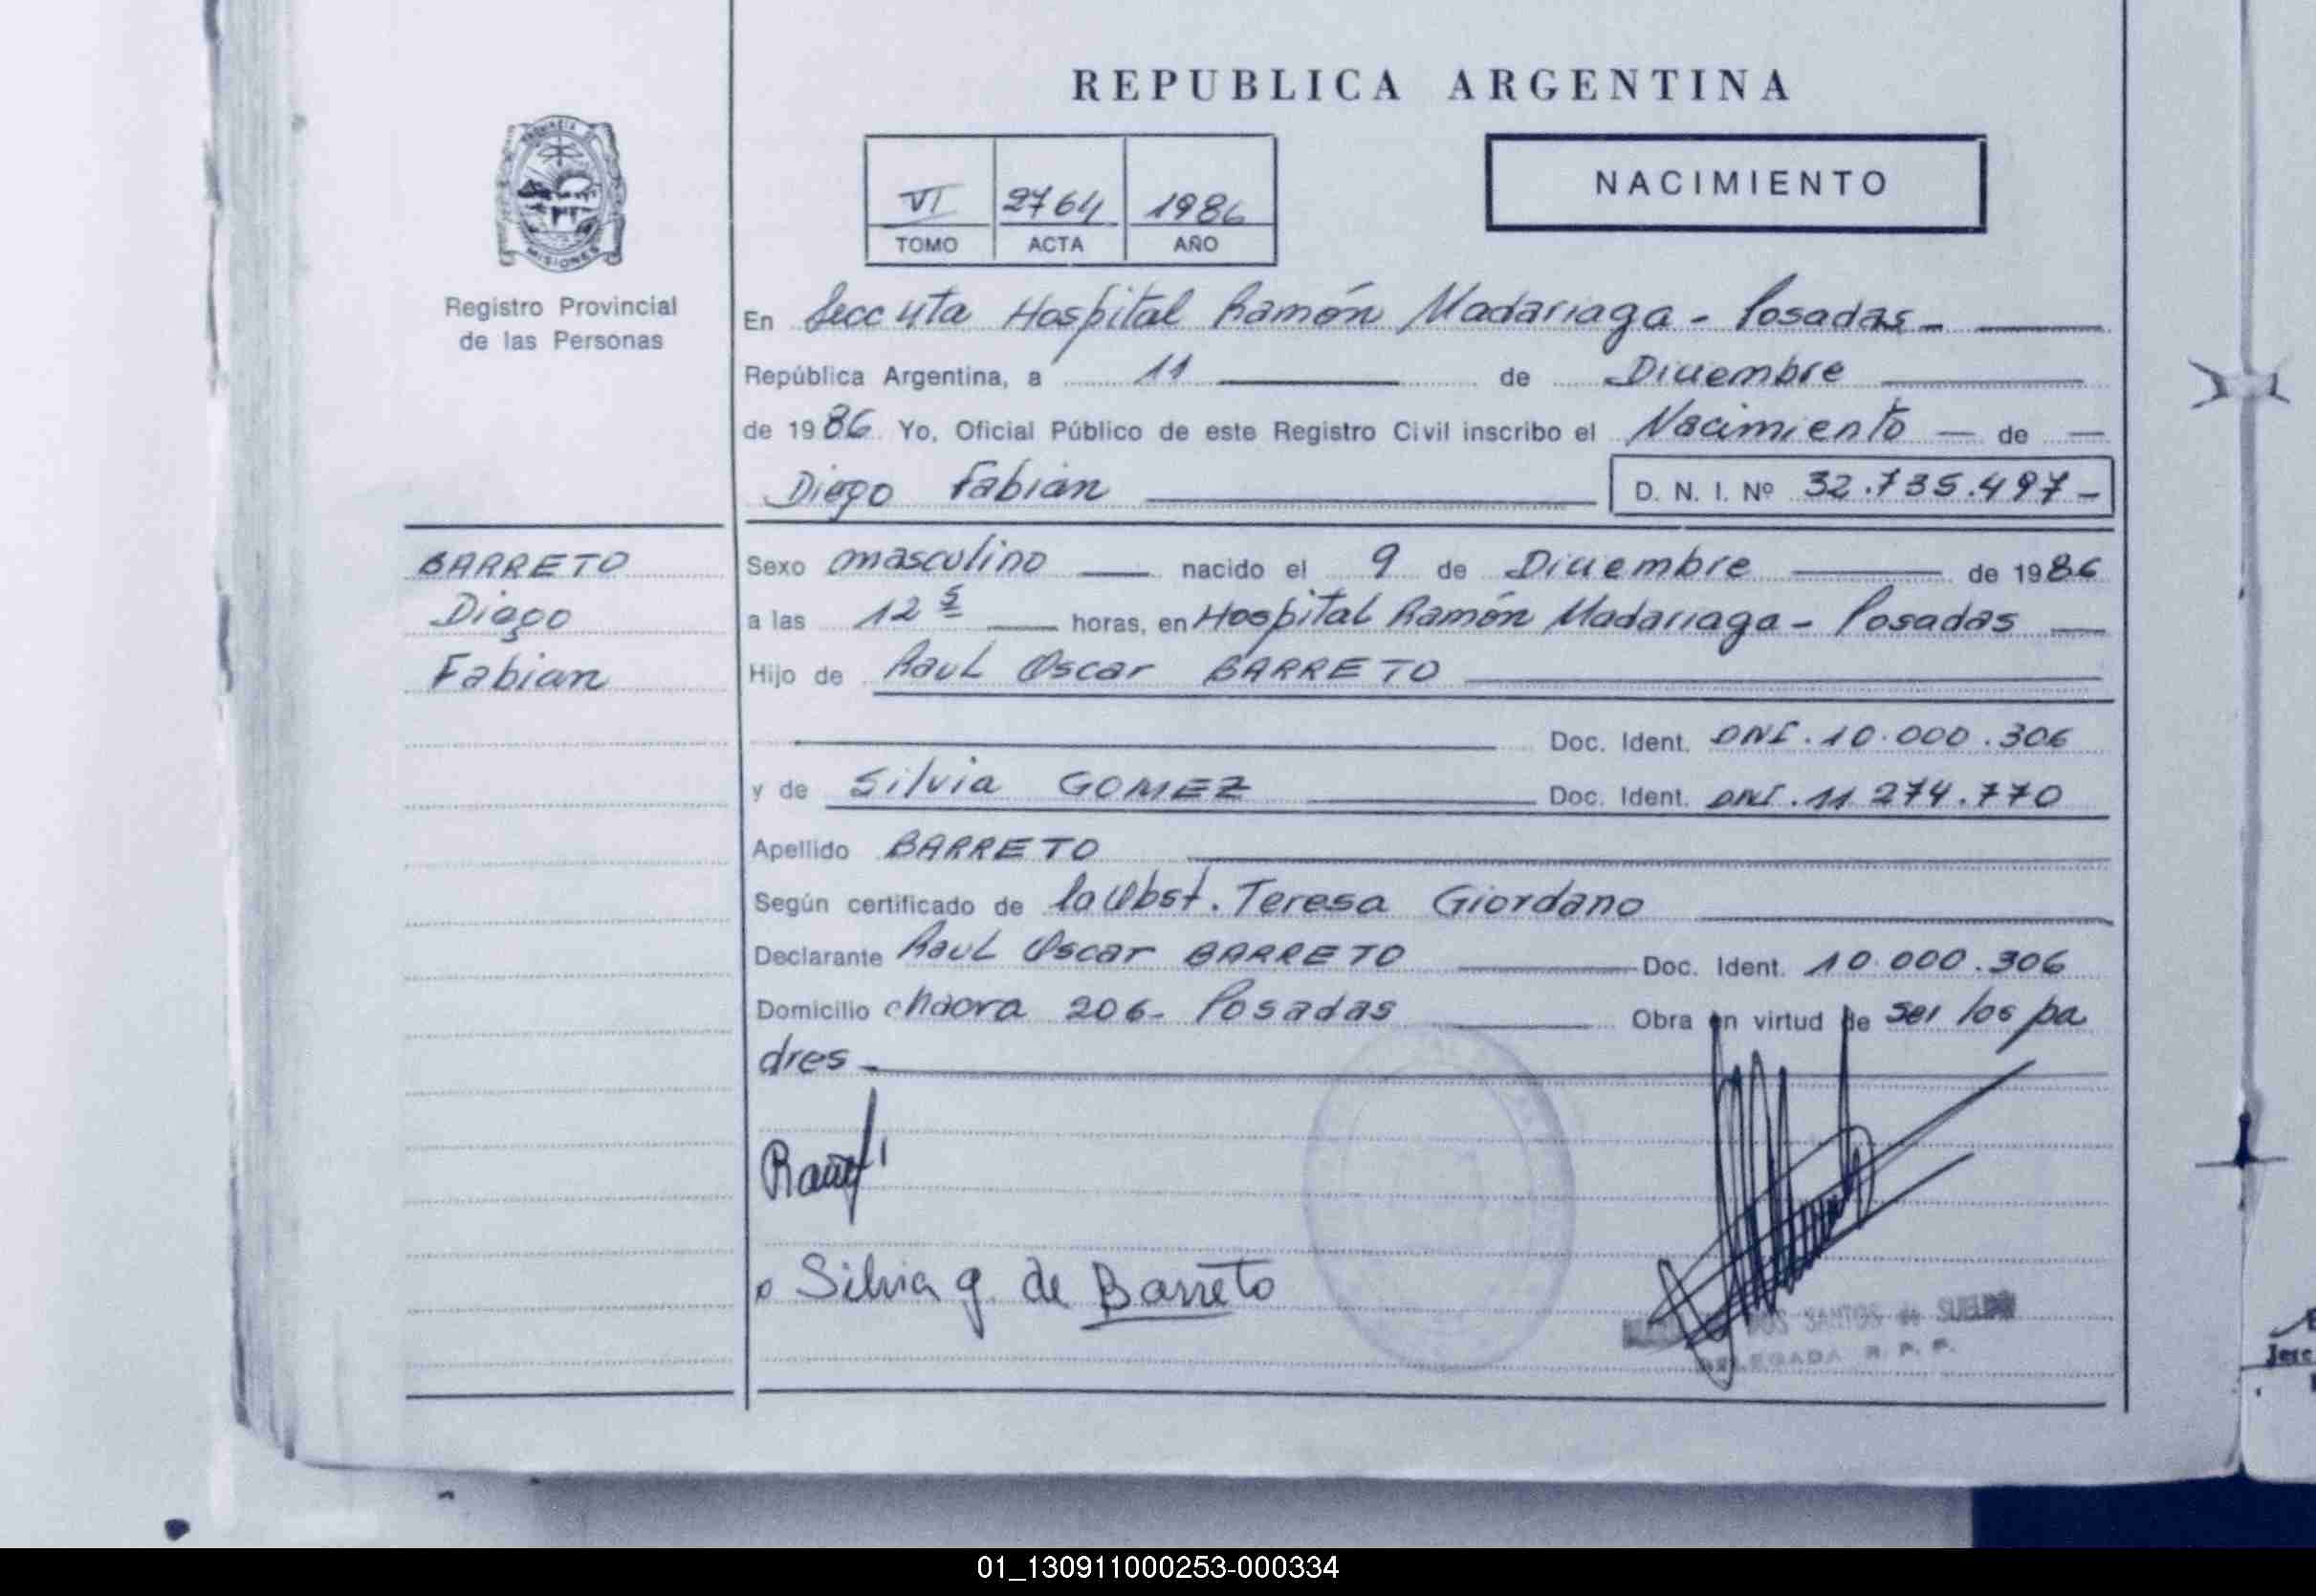 REPUBLICA ARGENTINA
PROVINCIA DE
MISIONES
Registro Provincial
de las Personas
VI 2764 1986
TOMO ACTA AÑO
NACIMIENTO
En Secc 4ta Hospital Ramón Madariaga - Posadas -
República Argentina, a 11 de Diciembre
de 1986 Yo, Oficial Público de este Registro Civil inscribo el Nacimiento — de —
Diego Fabian D. N. I. Nº 32.735.497 -
BARRETO
Diego
Fabian
Sexo masculino nacido el 9 de Diciembre de 1986
a las 12 5 horas, en Hospital Ramón Madariaga - Posadas
Hijo de Raul Oscar BARRETO
Doc. Ident. DNI. 10.000.306
y de Silvia GOMEZ Doc. Ident. DNI. 11 274.770
Apellido BARRETO
Según certificado de la Obst. Teresa Giordano
Declarante Raul Oscar BARRETO Doc. Ident. 10.000.306
Domicilio chacra 206- Posadas Obra en virtud de ser los pa
dres -
Silvia g. de Barreto
DOS SANTOS de SUELDO
DELEGADA R. P. P.
01_130911000253-000334